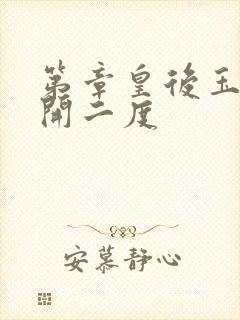 第章皇後玉
開二度
安慕静心